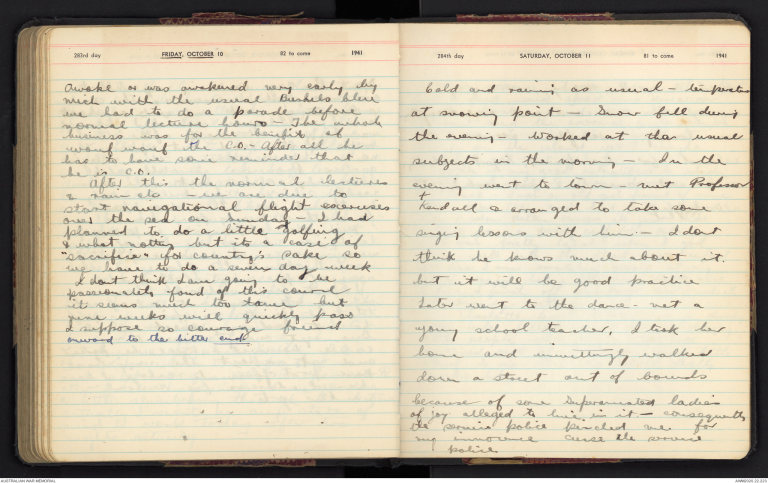 283rd day FRIDAY, OCTOBER 10 82 to come 1941
Awoke or was awakened very early by
much with the usual blue
we had to do a parade before
normal lecture hours - The whole
business was for the benefit of
wouf wouf the C.O. - After all he
has to have some reminder that
he is C.O.
After this the normal lectures
& rain etc - we are due to
start navigational flight exercises
over the sea on Sunday - I had
planned to do a little golfing
& what nottery but its a case of
"sacrifice" for country's sake so
we have to do a seven day week
I dont think I am going to be
passionately fond of this course
it seems much too tame but
nine weeks will quickly pass
I suppose so courage friend
onward to the bitter end
284th day SATURDAY, OCTOBER 11 81 to come 1941
Cold and raining as usual - temperature
at snowing point - Snow fell during
the evening - Worked at the usual
subjects in the morning - In the
evening went to town - met Professor
Kendall & arranged to take some
singing lessons with him - I dont
think he knows much about it.
but it will be good practice
Later went to the dance - met a
young school teacher, I took her
home and unwittingly walked
down a street out of bounds
because of some superannuated ladies
of joy alleged to live in it - consequently
the service police pinched me for
my innocence curse the service
police
AUSTRALIAN WAR MEMORIAL